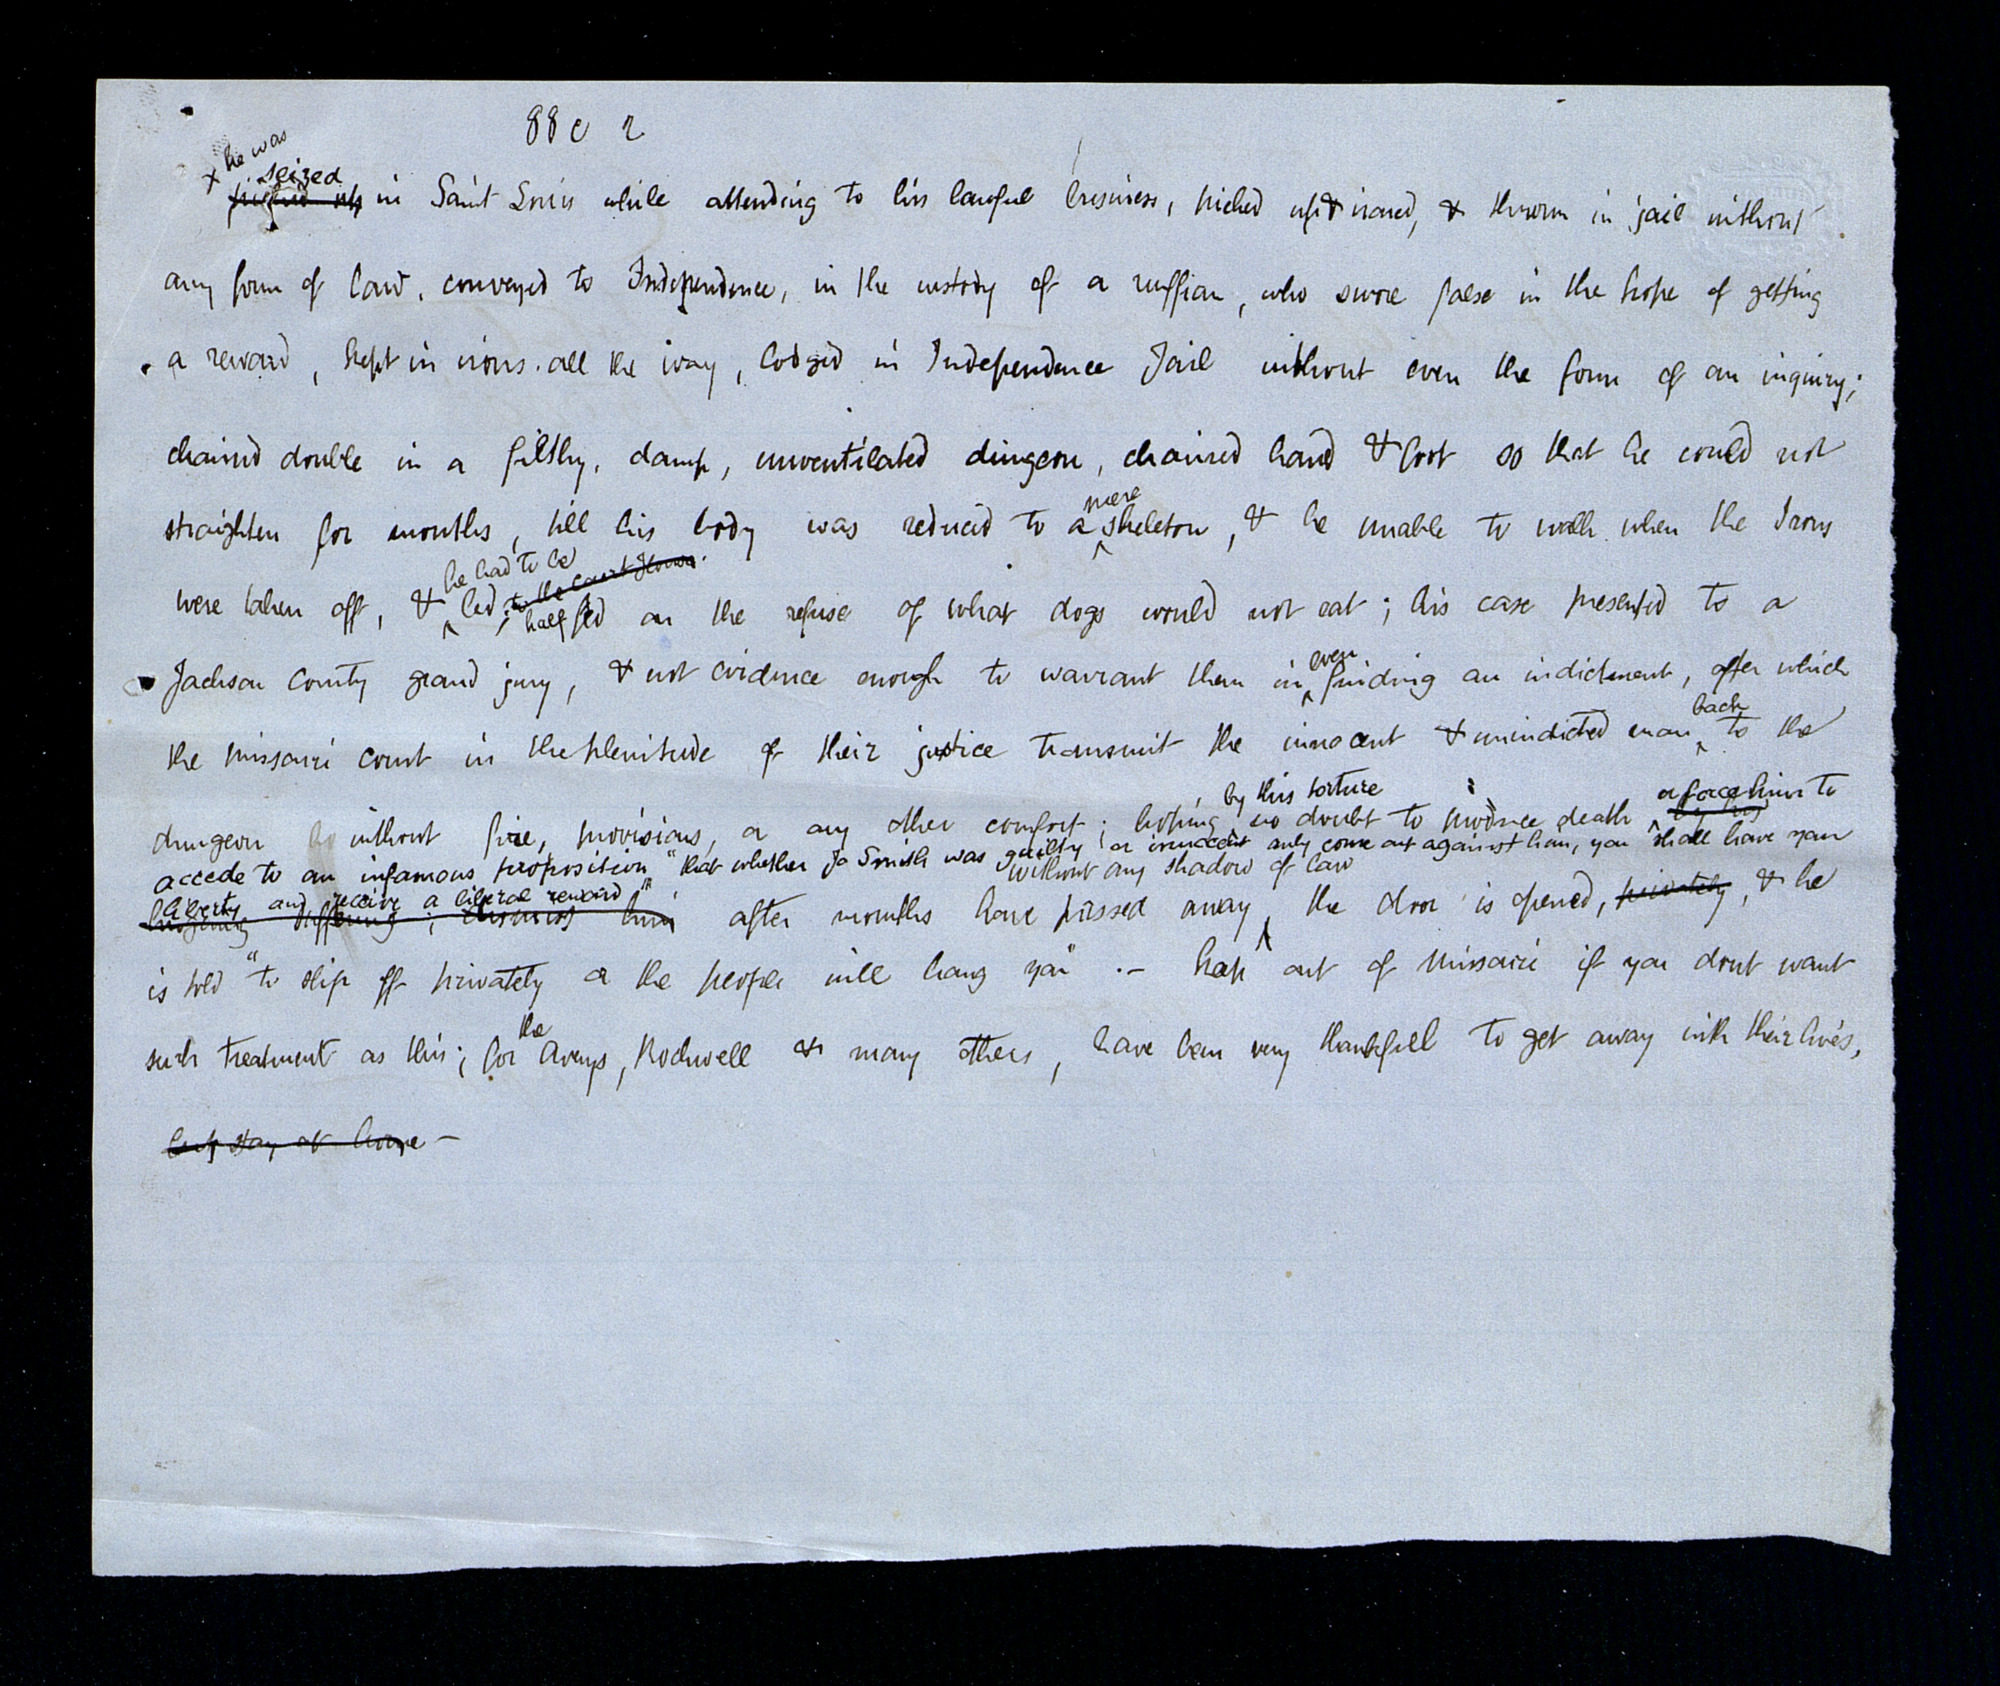 88 c 2
x he was
seized
picked up in Saint Louis while attending to his lawful business, picked up & ironed, & thrown in jail without
any form of law, conveyed to Independence, in the custody of a ruffian, who swore false in the hope of getting
a reward, kept in irons all the way, lodged in Independence Jail without even the form of an inquiry;
chained double in a filthy, damp, unventilated dungeon, chained hand & foot so that he could not
mere
straighten for months, till his body was reduced to a skeleton, & he unable to walk when the Irons
he had to be
to the Court House.
were taken off, & led; half fed on the refuse of what dogs would not eat; his case presented to a
even
Jackson County grand jury, & not evidence enough to warrant them in finding an indictment, after which
back
the Missouri court in the plenitude of their justice transmit the innocent & unindicted man to the
by this torture
or force him to
dungeon without fire, provisions, or any other comfort; hoping no doubt to produce death by his
accede to an infamous proposition "that whether Jo Smith was guilty or innocent only come out against him, you shall have your
liberty and receive a liberal reward"
without any shadow of law
lingering suffering; dismiss him after months have passed away, the door is opened, privately, & he
is told "to slip off privately or the people will hang you" .— keep out of Missouri if you dont want
the
such treatment as this; for Averys, Rockwell & many others, have been very thankfull to get away with their lives,
but stay at home —